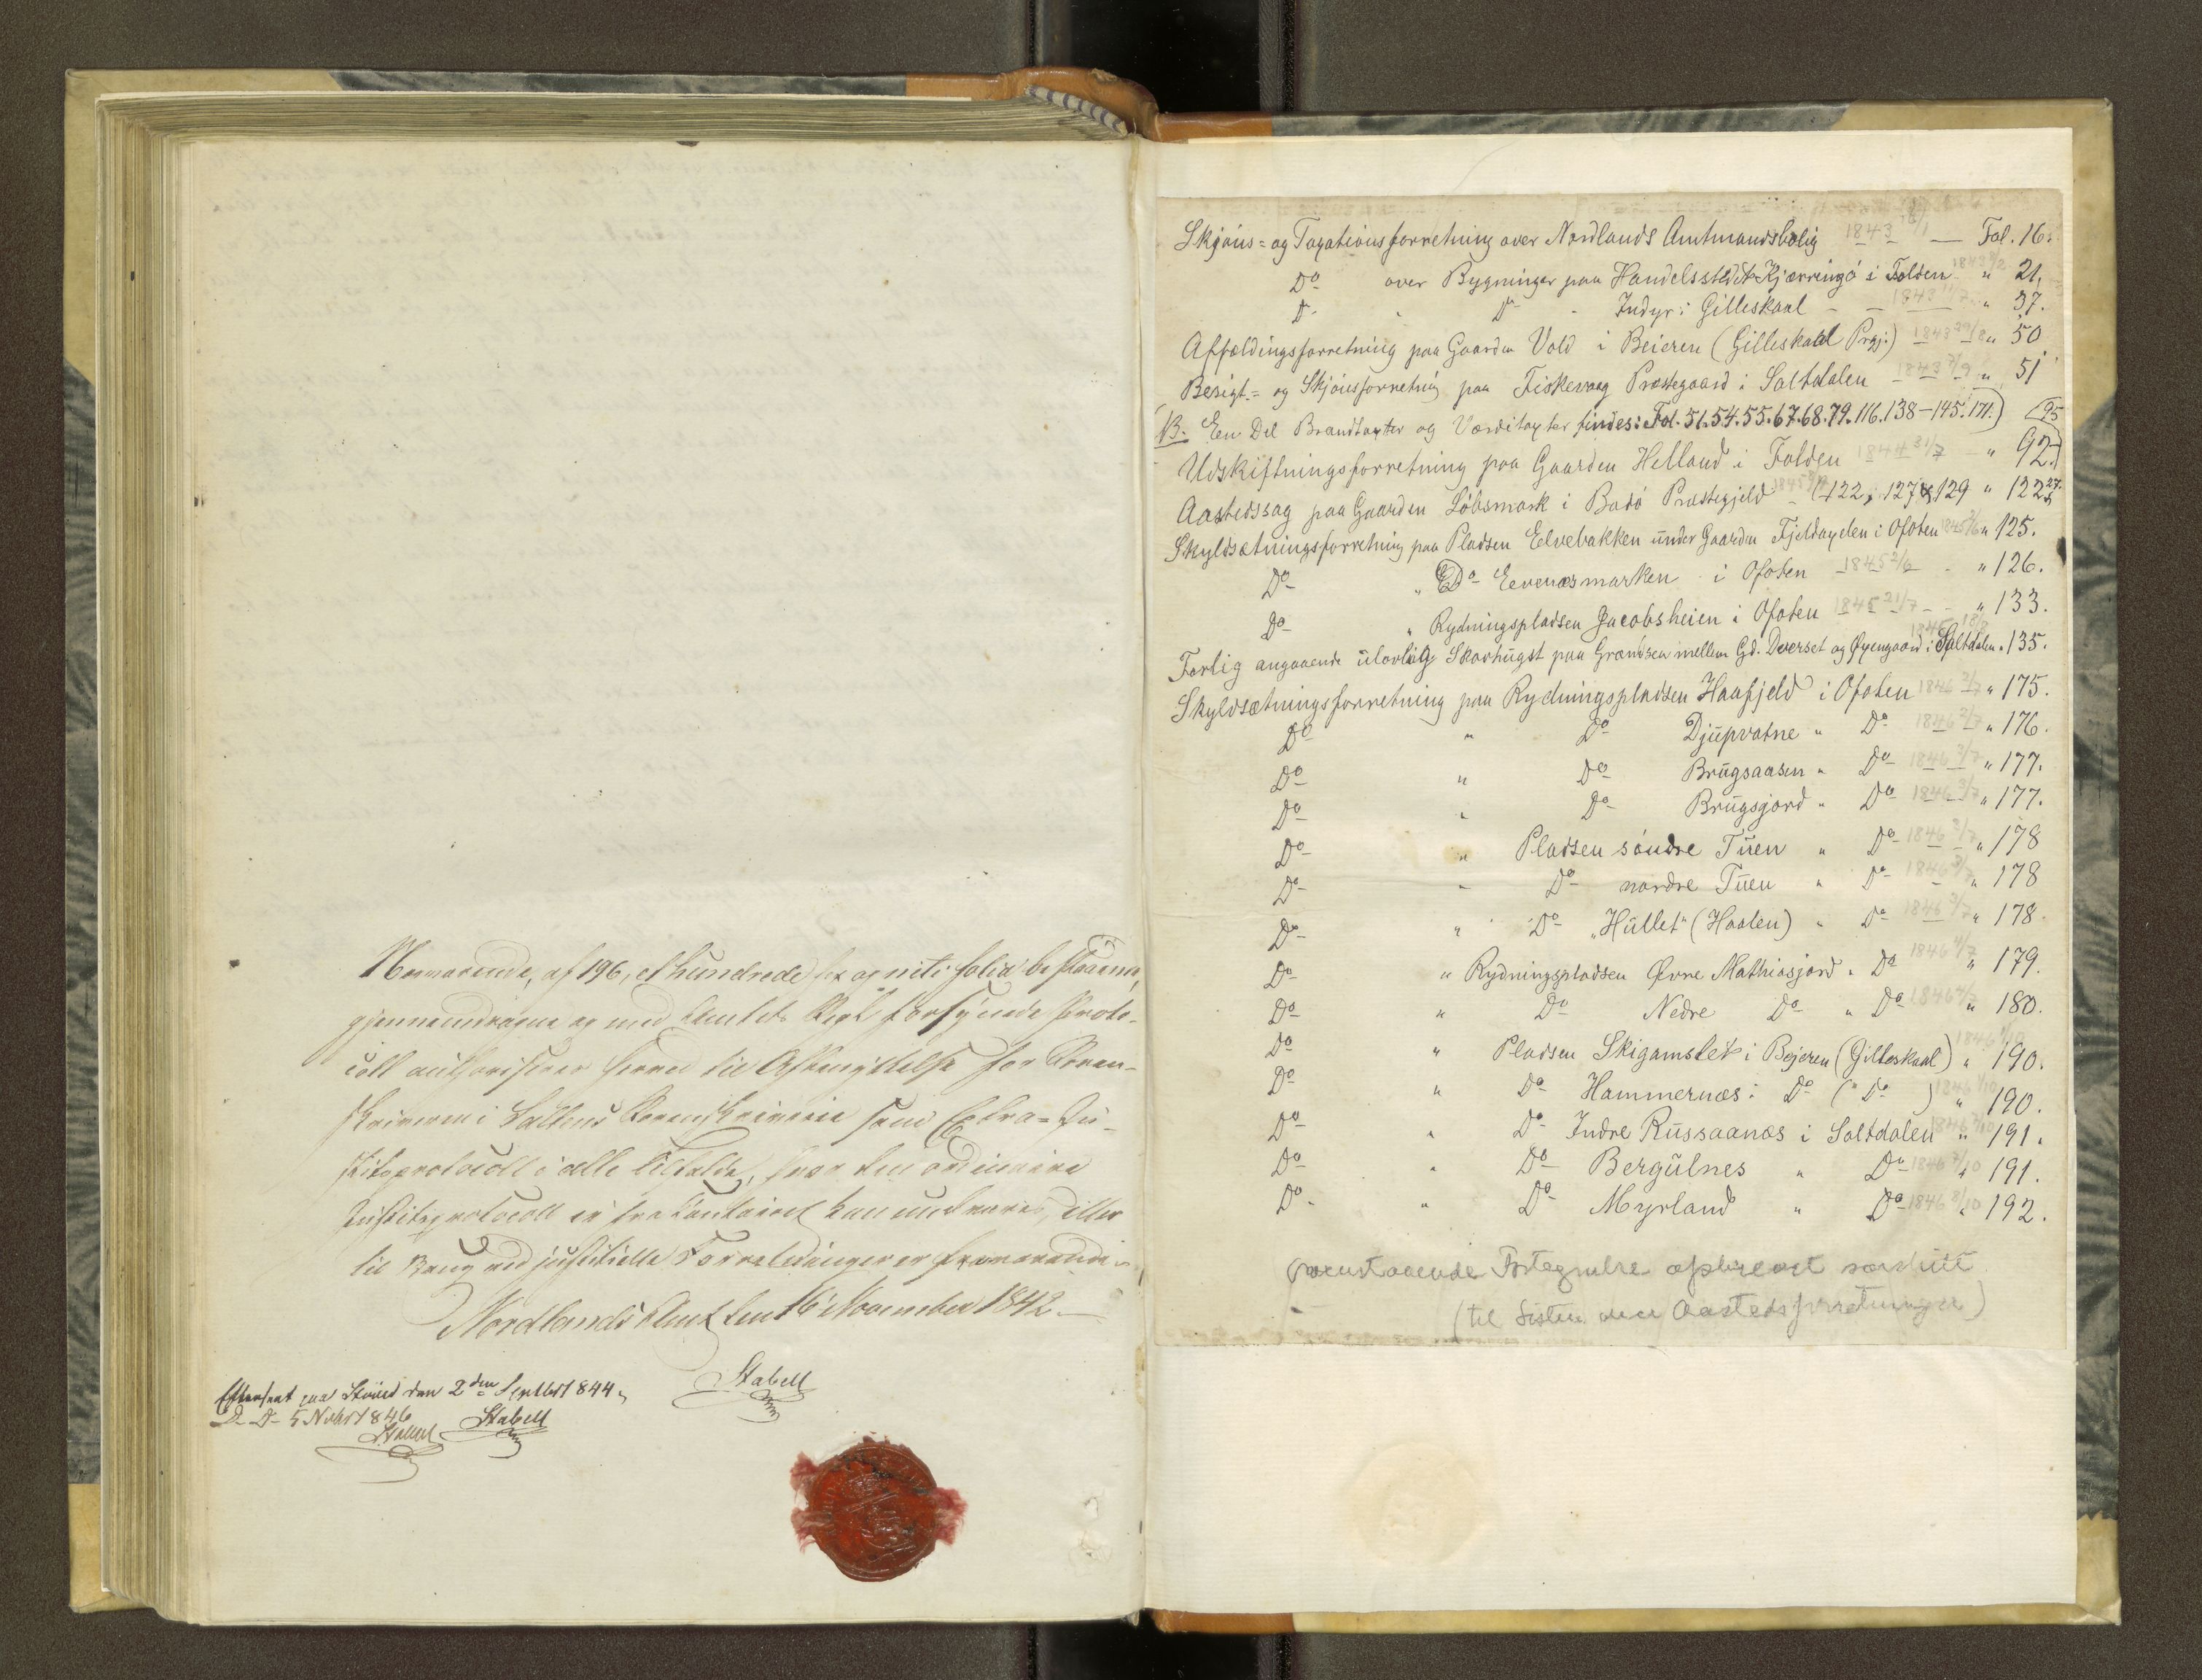 Nærværende, af 196, et hundrede sex og niti folia bestaaende,
gjennemdragne og med Amtets Segl forsynede Proto-
coll authoriseres herved til Afbenyttelse for Soren-
skriveren i Saltens Sorenskriverie som Extra-Ju-
stitsprotocoll i alle Tilfælde, hvor den ordinaire
Justitsprotocoll ei kan undværes, eller
til Brug ved justitielle Forretninger er fraværende.
Nordlands Amt den 16 November 1842
Stabell
Efterseet paa Skriud den 2den Septbr 1844
Do Do 5 Novbr 1846 Stabell
Stabell
Skjøns= og Taxationsforretning over Nordlands Amtmandsbolig 1843 /1 — Fol. 16.
Do over Bygninger paa Handelsstedet Kjærringø i Folden 1843 /2 " 21,
D. " D. - Indyr i Gilleskaal - 1843 /7 " 37.
Affældingsforretning paa Gaarden Vold i Beieren (Gilleskaal Prgj.) 1843 29/8 " 50
Besigt.= og Skjønsforretning paa Fiskevaag Præstegaard i Saltdalen 1843 7/9 " 51
NB. Een Del Brandtaxter og Værditaxter findes: Fol. 51.54.55.67.68.79.116.138-145.171.) (95
Udskiftningsforretning paa Gaarden Helland i Folden 1844 31/7 " 92.)
Aastedssag paa Gaarden Løbsmark i Bodø Præstegjeld 1845 (122, 127 & 129 " 122 27.
Skyldsætningsforretning paa Pladsen Elvebakken under Gaarden Fjeldaxelen i Ofoten 1845 2/6 " 125.
Do " Do Eevenæsmarken i Ofoten 1845 2/6 " 126.
Do " Rydningspladsen Jacobsheien i Ofoten 1845 21/7 " 133.
Forlig angaaende ulovlig Skovhugst paa Grændsen mellem Gd. Dverset og Øyengaard i Saltdalen 1845 18/8 " 135.
Skyldsætningsforretning paa Rydningspladsen Haafjeld i Ofoten 1846 2/7 " 175.
Do " Do Djupvatne " Do 1846 2/7 " 176.
Do " Do Brugsaasen " Do 1846 3/7 " 177.
Do " Do Brugsjord " Do 1846 3/7 " 177.
Do " Pladsen søndre Tuen " Do 1846 3/7 " 178
Do " Do nordre Tuen " Do 1846 3/7 " 178
Do " Do „Hullet" (Haalen) " Do 1846 3/7 " 178
Do " Rydningspladsen Øvre Mathiasjord " Do 1846 4/7 " 179.
Do " Do Nedre Do " Do 1846 4/7 " 180.
Do " Pladsen Skigamslet i Bejeren (Gilleskaal) 1846 1/10 " 190.
Do " Do Hammernæs i Do (" Do ) 1846 1/10 " 190.
Do " Do Indre Russaanæs i Saltdalen 1846 7/10 " 191.
Do " Do Bergulnes " Do 1846 7/10 " 191.
Do. " Do Myrland " Do 1846 8/10 " 192.
Foranstaaende Fortegnelse opbevart særskilt
(til Listen over Aastedsforretninger)